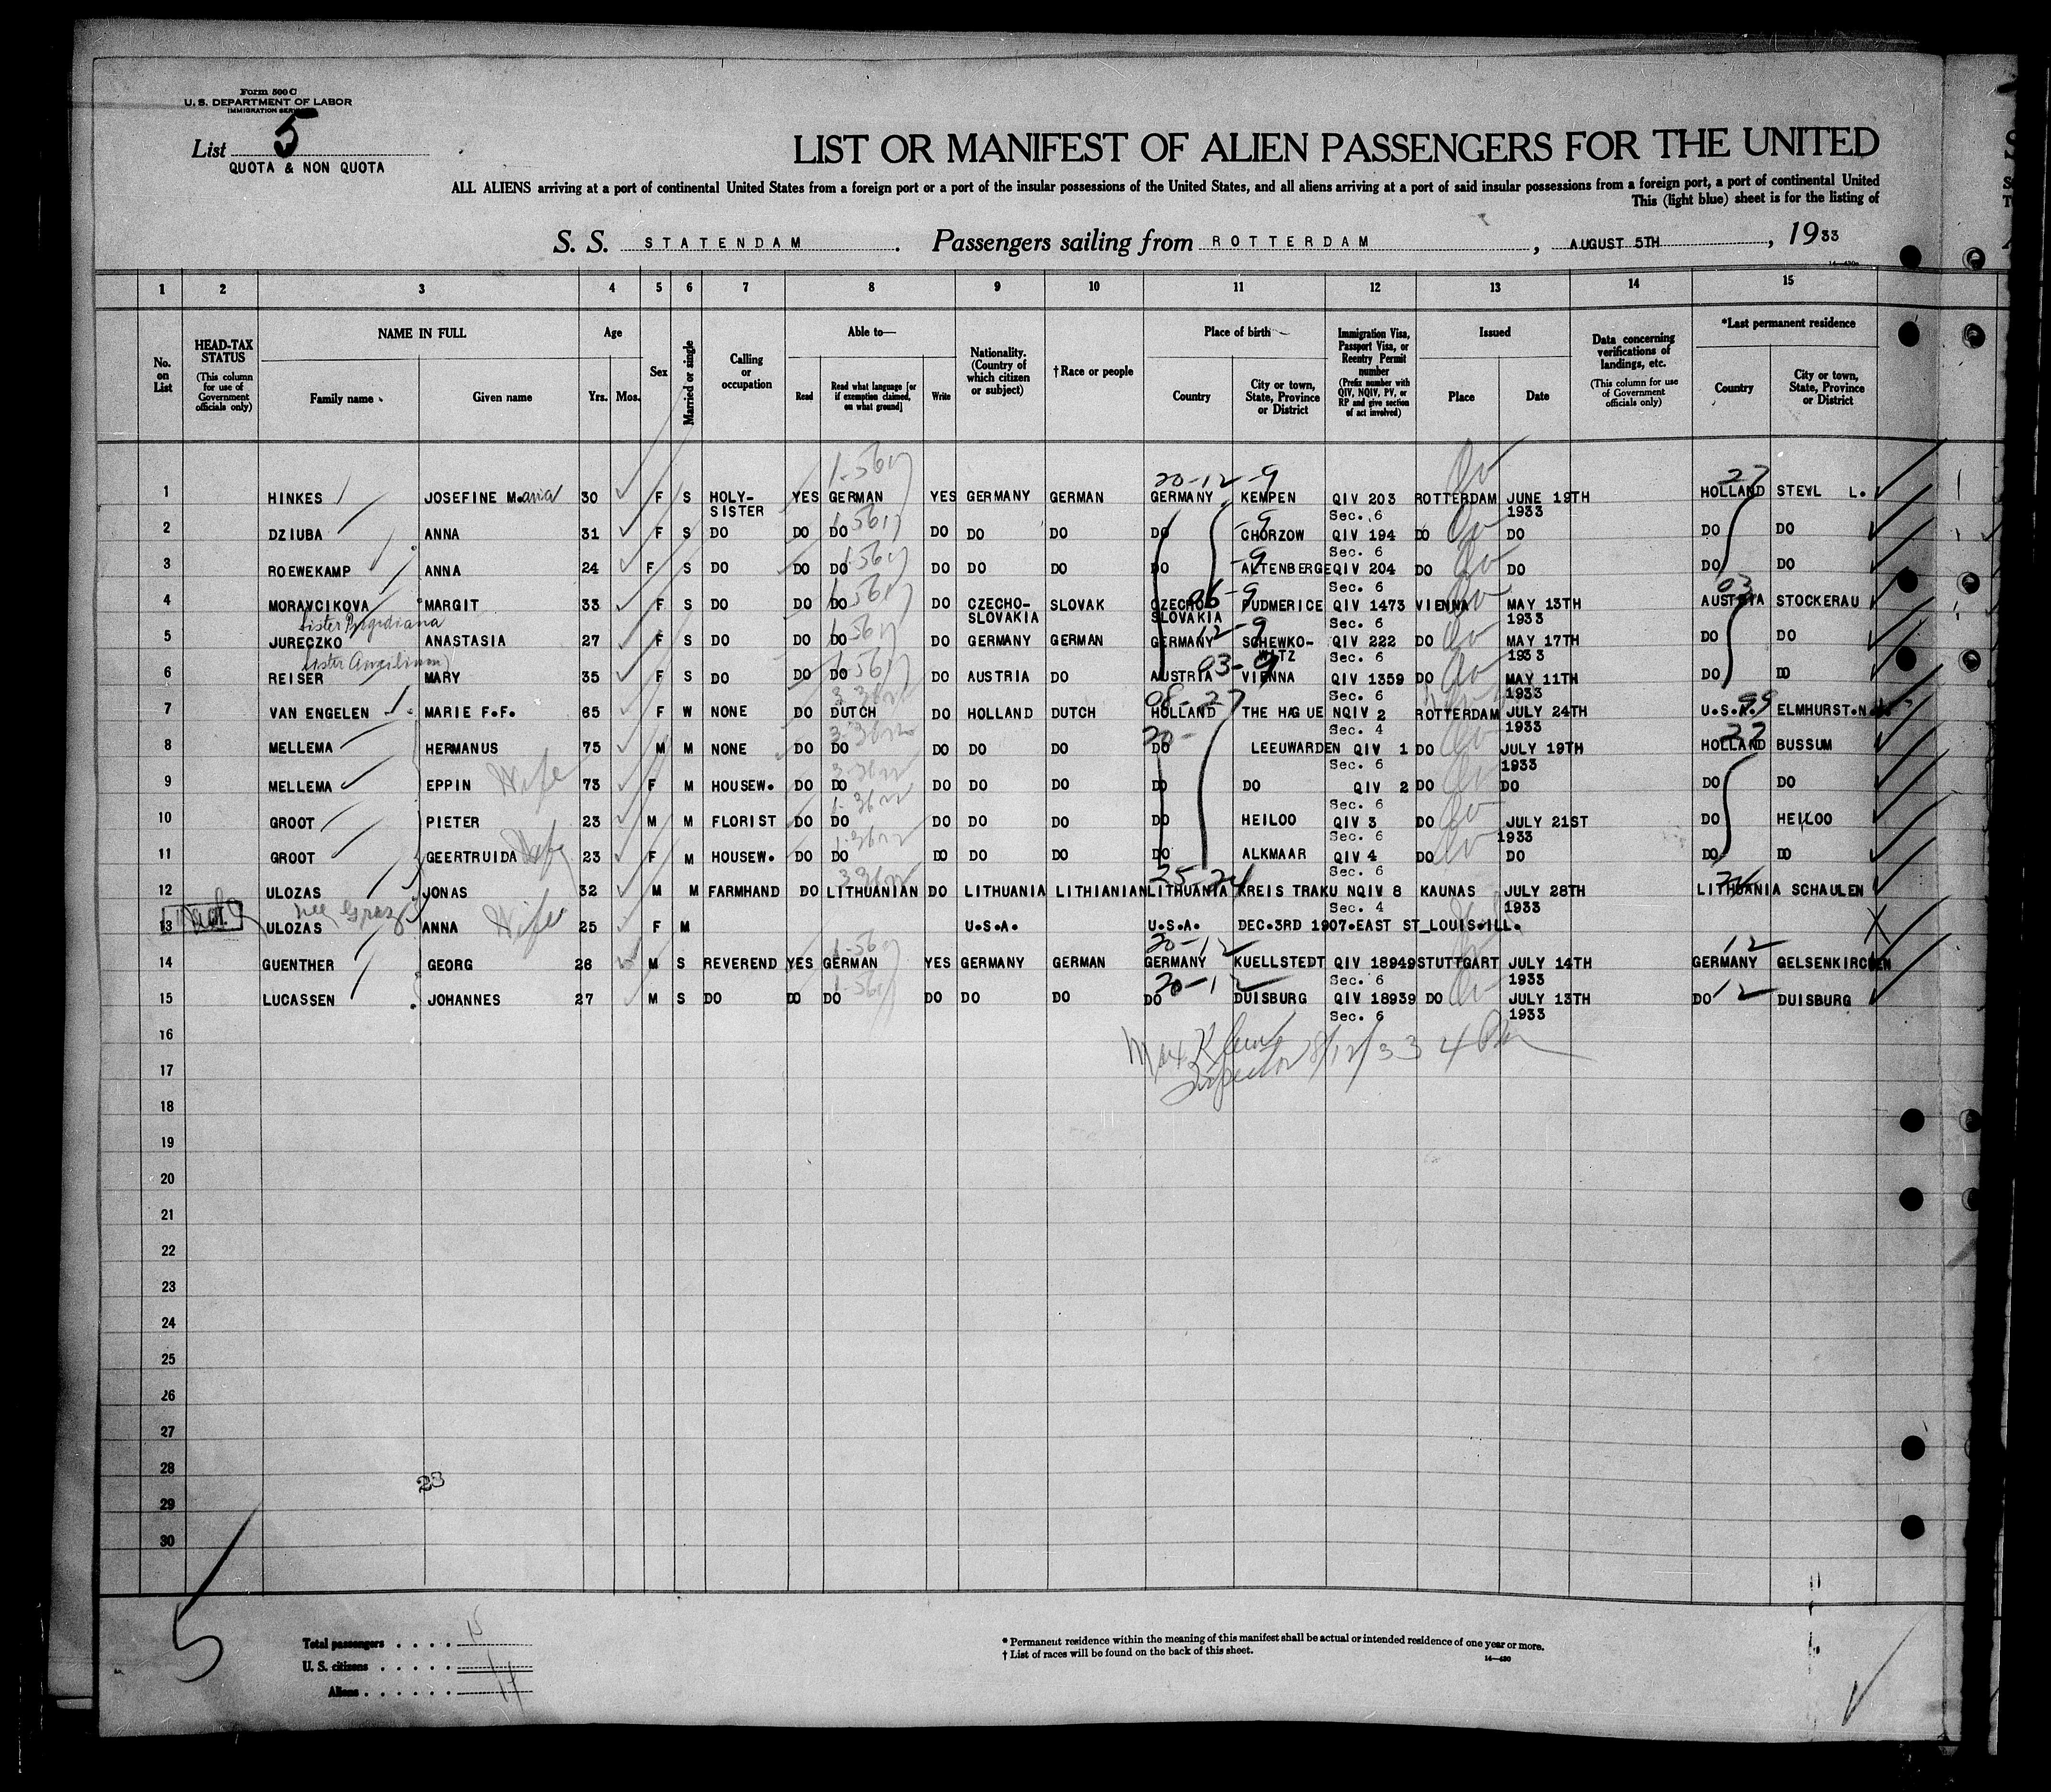 Form 500 C
U. S. DEPARTMENT OF LABOR
IMMIGRATION SERVICE
List 5
QUOTA & NON QUOTA
LIST OR MANIFEST OF ALIEN PASSENGERS FOR THE UNITED
ALL ALIENS arriving at a port of continental United States from a foreign port or a port of the insular possessions of the United States, and all aliens arriving at a port of said insular possessions from a foreign port, a port of continental United
This (light blue) sheet is for the listing of
S. S. STATENDAM. Passengers sailing from ROTTERDAM, AUGUST 5TH, 1933
1 2 3 4 5 6 7 8 9 10 11 12 13 14 15
No. on List
HEAD-TAX STATUS (This column for use of Government officials only)
NAME IN FULL
Family name Given name
Age
Yrs. Mos.
Sex
Married or single
Calling or occupation
Able to—
Read Read what language [or if exemption claimed, on what ground] Write
Nationality. (Country of which citizen or subject)
†Race or people
Place of birth
Country City or town, State, Province or District
Immigration Visa, Passport Visa, or Reentry Permit number (Prefix number with QIV, NQIV, PV, or RP and give section of act involved)
Issued
Place Date
Data concerning verifications of landings, etc. (This column for use of Government officials only)
*Last permanent residence
Country City or town, State, Province or District
1 HINKES JOSEFINE Maria 30 F S HOLY- YES GERMAN YES GERMANY GERMAN GERMANY KEMPEN QIV 203 ROTTERDAM JUNE 19TH HOLLAND STEYL L.
SISTER Sec. 6 1933
2 DZIUBA ANNA 31 F S DO DO DO DO DO DO DO CHORZOW QIV 194 DO DO DO DO
Sec. 6
3 ROEWEKAMP ANNA 24 F S DO DO DO DO DO DO DO ALTENBERGE QIV 204 DO DO DO DO
Sec. 6
4 MORAVCIKOVA MARGIT 33 F S DO DO DO DO CZECHO- SLOVAK CZECHO- PUDMERICE QIV 1473 VIENNA MAY 13TH AUSTRIA STOCKERAU
Sister SLOVAKIA SLOVAKIA Sec. 6 1933
5 JURECZKO ANASTASIA 27 F S DO DO DO DO GERMANY GERMAN GERMANY SCHEWKO- QIV 222 DO MAY 17TH DO DO
Sister WITZ Sec. 6 1933
6 REISER MARY 35 F S DO DO DO DO AUSTRIA DO AUSTRIA VIENNA QIV 1359 DO MAY 11TH DO DO
Sec. 6 1933
7 VAN ENGELEN MARIE F.F. 65 F W NONE DO DUTCH DO HOLLAND DUTCH HOLLAND THE HAGUE NQIV 2 ROTTERDAM JULY 24TH U.S.A. ELMHURST.N.
Sec. 4 1933
8 MELLEMA HERMANUS 75 M M NONE DO DO DO DO DO DO LEEUWARDEN QIV 1 DO JULY 19TH HOLLAND BUSSUM
Sec. 6 1933
9 MELLEMA EPPIN Wife 73 F M HOUSEW. DO DO DO DO DO DO DO QIV 2 DO DO DO DO
Sec. 6
10 GROOT PIETER 23 M M FLORIST DO DO DO DO DO DO HEILOO QIV 3 DO JULY 21ST DO HEILOO
Sec. 6 1933
11 GROOT GEERTRUIDA Wife 23 F M HOUSEW. DO DO DO DO DO DO ALKMAAR QIV 4 DO DO DO DO
Sec. 6
12 ULOZAS JONAS 32 M M FARMHAND DO LITHUANIAN DO LITHUANIA LITHIANIAN LITHUANIA KREIS TRAKU NQIV 8 KAUNAS JULY 28TH LITHUANIA SCHAULEN
Sec. 4 1933
13 ULOZAS ANNA Wife 25 F M U.S.A. U.S.A. DEC.3RD 1907.EAST ST_LOUIS.ILL.
14 GUENTHER GEORG 26 M S REVEREND YES GERMAN YES GERMANY GERMAN GERMANY KUELLSTEDT QIV 18949 STUTTGART JULY 14TH GERMANY GELSENKIRCHEN
Sec. 6 1933
15 LUCASSEN JOHANNES 27 M S DO DO DO DO DO DO DO DUISBURG QIV 18939 DO JULY 13TH DO DUISBURG
Sec. 6 1933
16
Inspector 8/12/33 4 PM
17
18
19
20
21
22
23
24
25
26
27
28
23
29
30
5
Total passengers 15
U. S. citizens
Aliens 14
* Permanent residence within the meaning of this manifest shall be actual or intended residence of one year or more.
† List of races will be found on the back of this sheet.
14—430